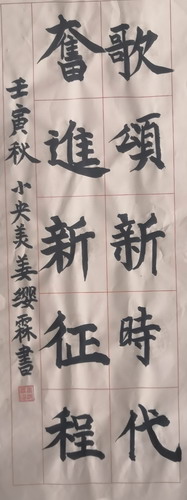 歌頌新時代
奮進新征程
壬寅秋 小央美姜纓霖書